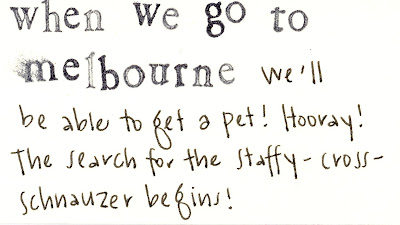 when we go to
melbourne we'll
be able to get a pet! Hooray!
The search for the staffy-cross-
schnauzer begins!